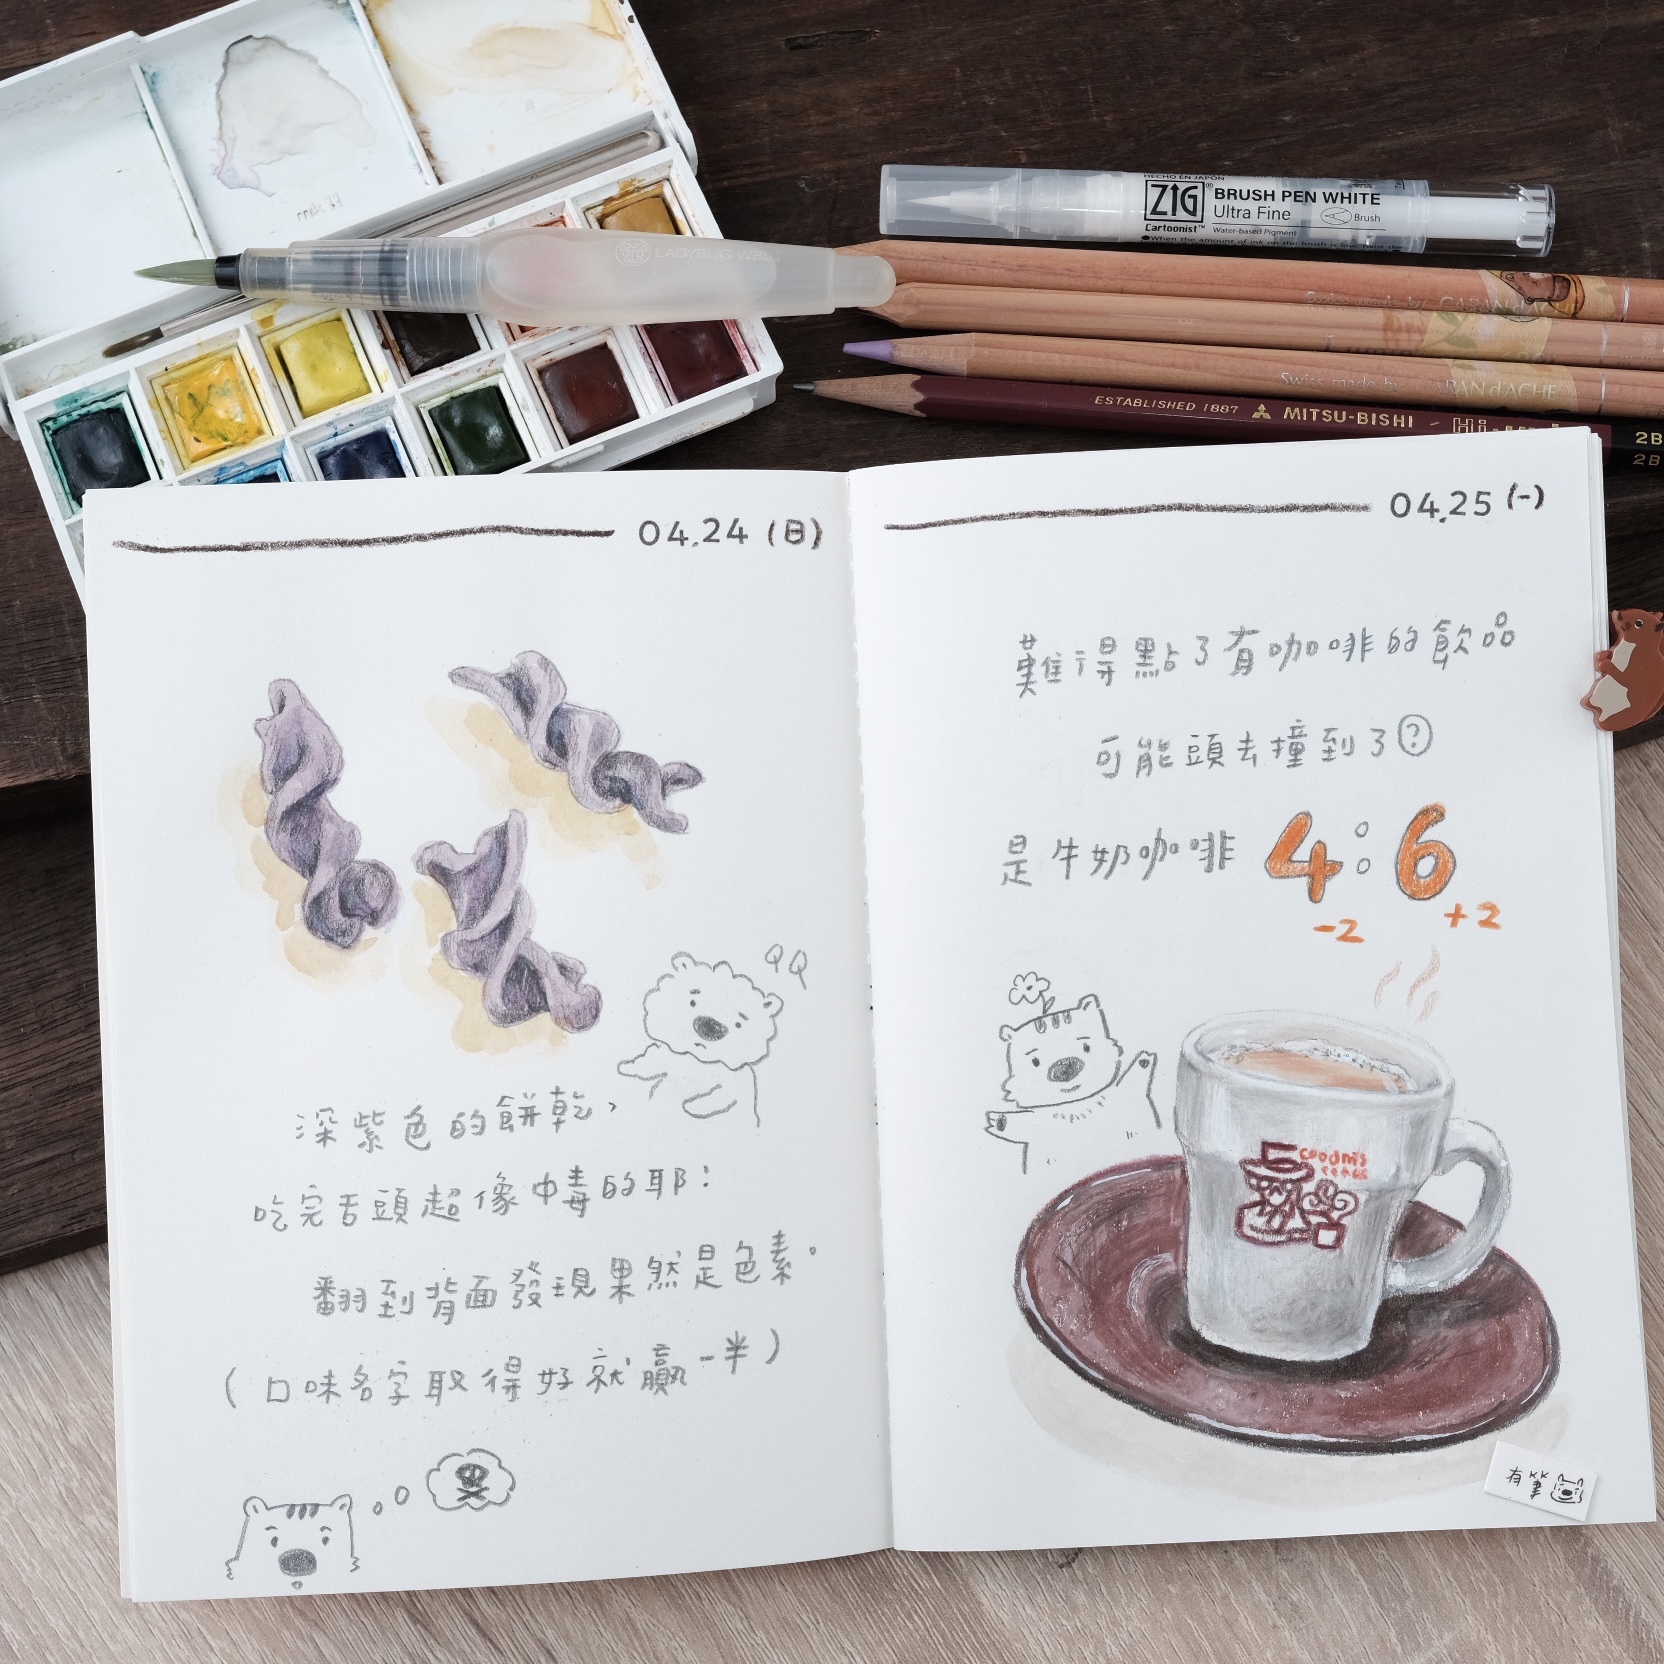 HECHO EN JAPÓN
ZIG® BRUSH PEN WHITE
Ultra Fine Brush
Cartoonist™ Water-based Pigment
LADYBUG
Swiss made by CARAN
Swiss made by ARAN d'ACHE
ESTABLISHED 1887 MITSU-BISHI - Hi-uni 2B
2B
04.24 (日)
QQ
深紫色的餅乾，
吃完舌頭超像中毒的耶！
翻到背面發現果然是色素。
(口味名字取得好就贏一半)
04.25 (一)
難得點了有咖啡的飲品
可能頭去撞到了?
是牛奶咖啡 4:6
-2 +2
有筆